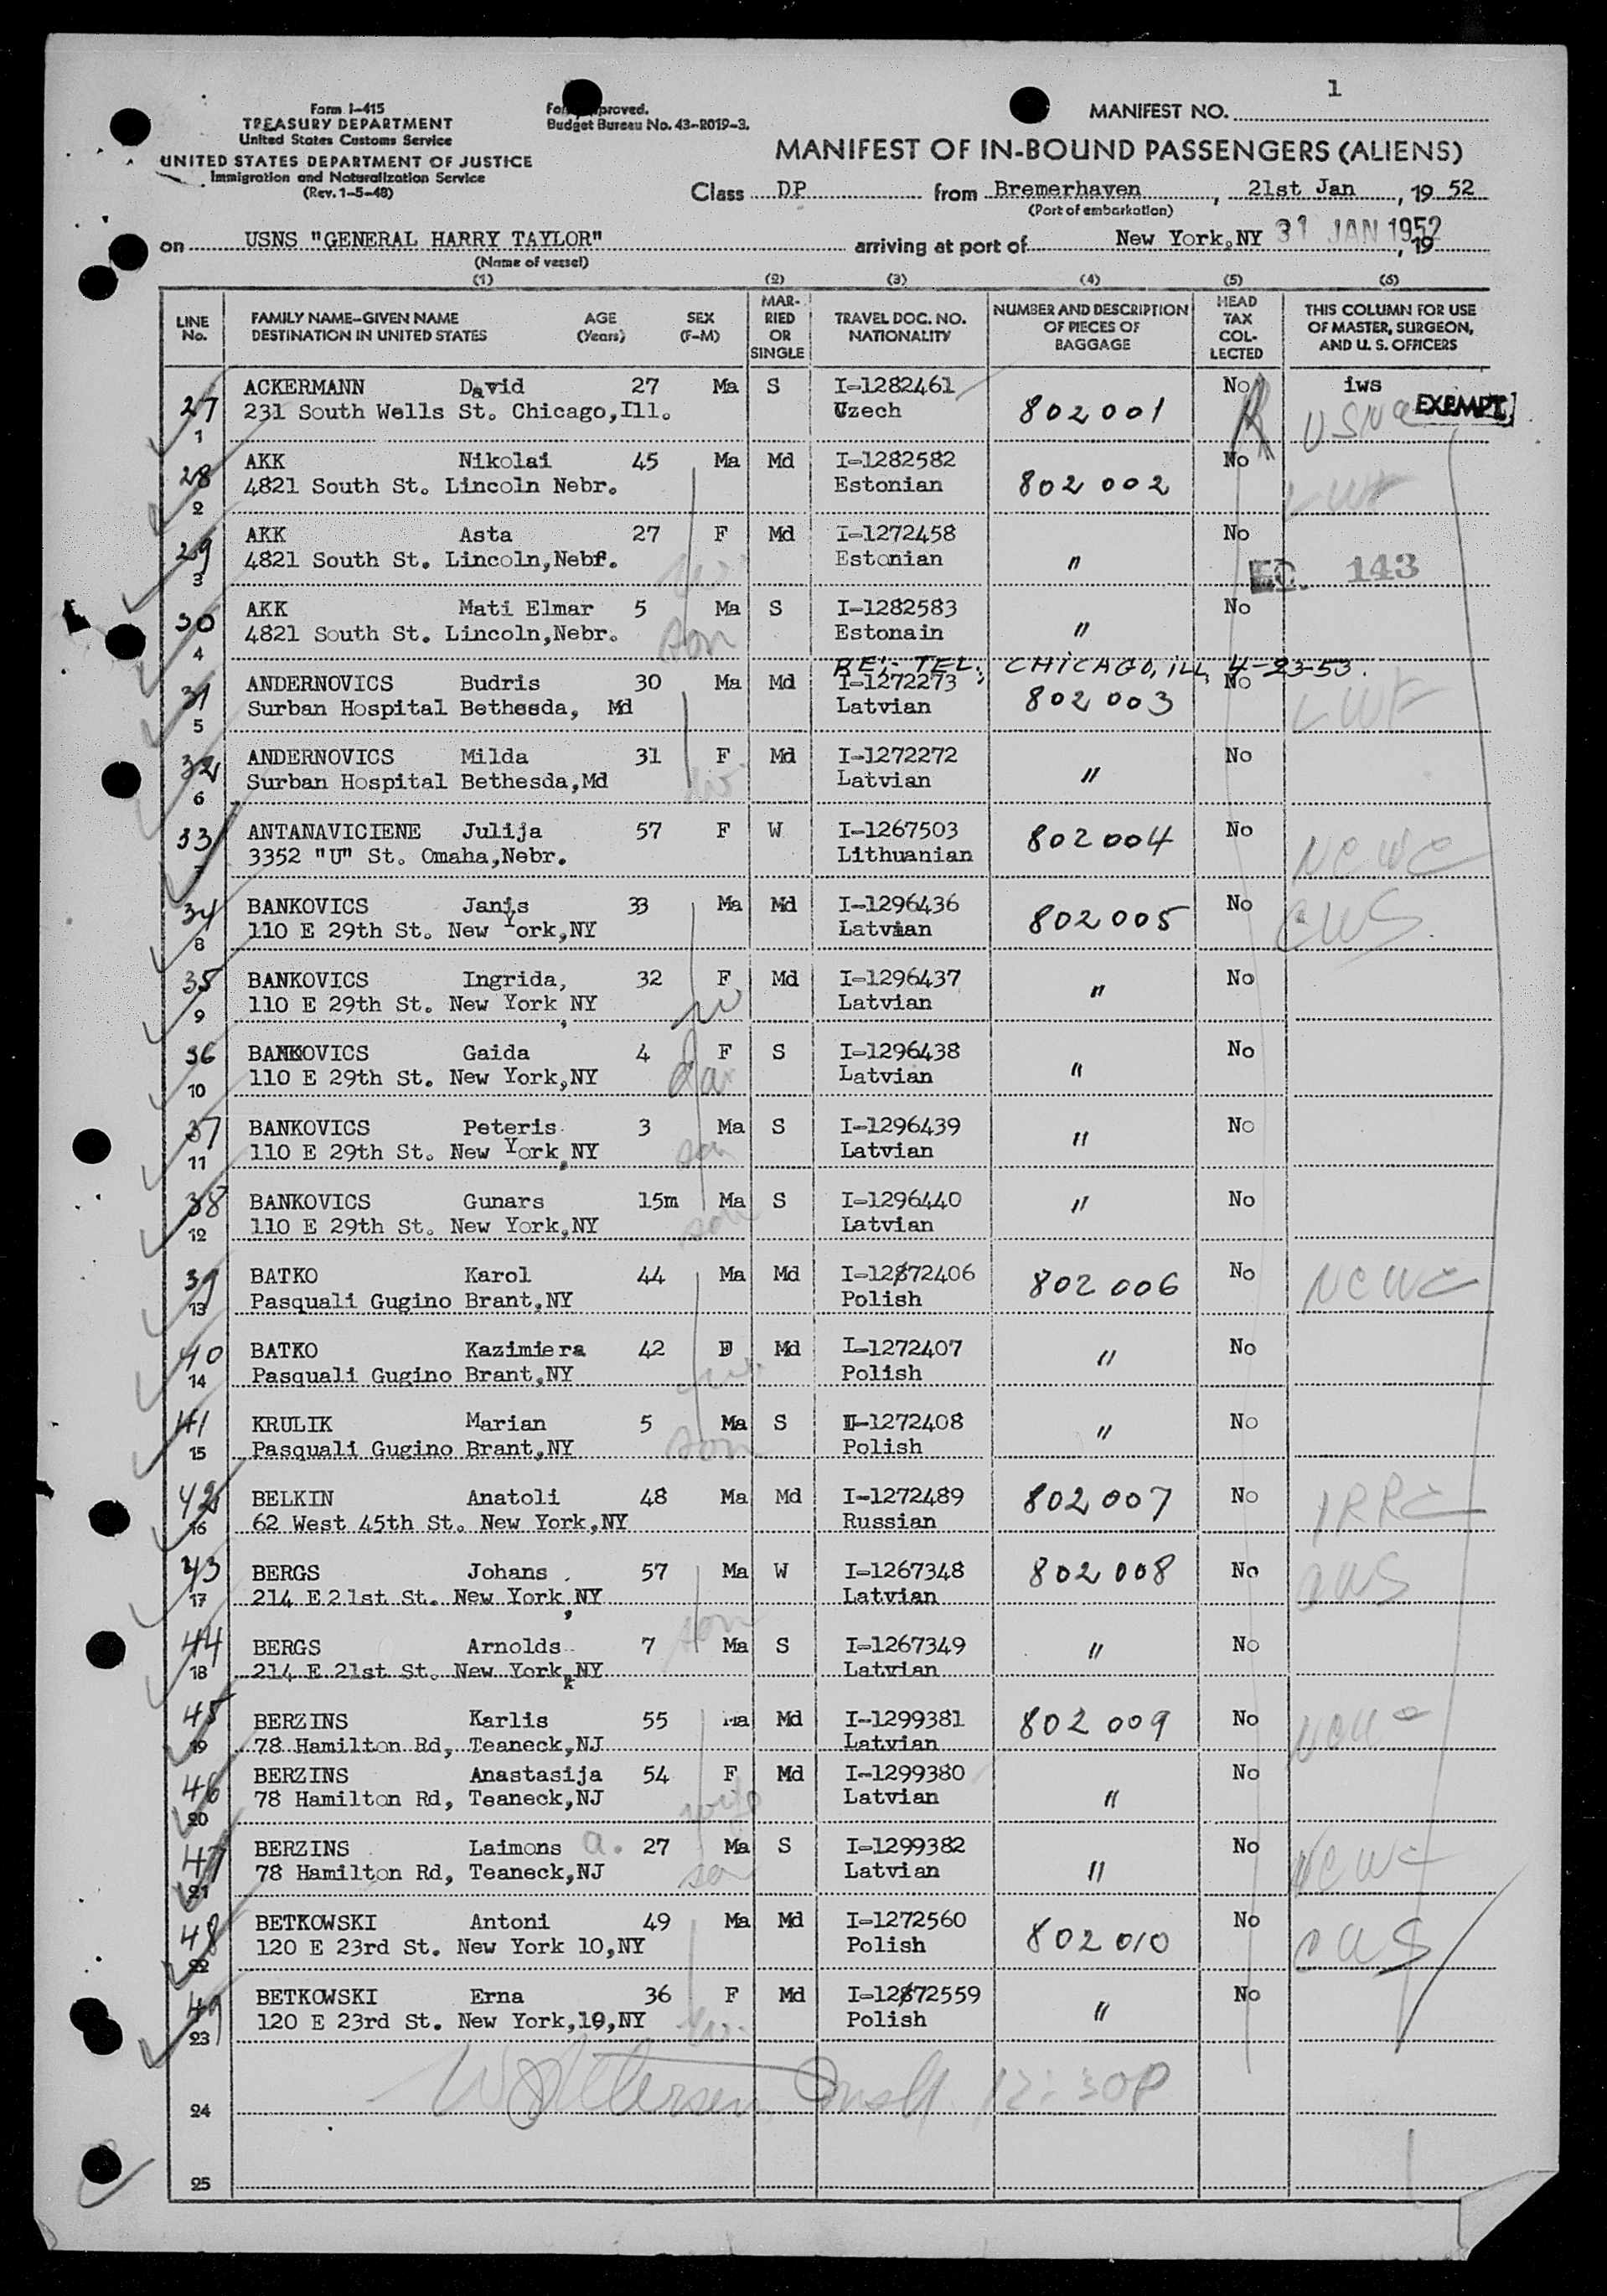 1
Form I-415
TREASURY DEPARTMENT
United States Customs Service
UNITED STATES DEPARTMENT OF JUSTICE
Immigration and Naturalization Service
(Rev. 1-5-48)
Budget Bureau No. 43-R019-3.
MANIFEST NO.
MANIFEST OF IN-BOUND PASSENGERS (ALIENS)
Class DP from Bremerhaven, 21st Jan, 19 52
(Port of embarkation)
on USNS "GENERAL HARRY TAYLOR" arriving at port of New York,NY 31 JAN 1952, 19
(Name of vessel)
(1) (2) (3) (4) (5) (6)
LINE No. FAMILY NAME-GIVEN NAME DESTINATION IN UNITED STATES AGE (Years) SEX (F-M) MARRIED OR SINGLE TRAVEL DOC. NO. NATIONALITY NUMBER AND DESCRIPTION OF PIECES OF BAGGAGE HEAD TAX COLLECTED THIS COLUMN FOR USE OF MASTER, SURGEON, AND U. S. OFFICERS
27 ACKERMANN David 27 Ma S I-1282461 No iws
1 231 South Wells St. Chicago,Ill. Czech 802001 USNA EXEMPT
28 AKK Nikolai 45 Ma Md I-1282582 No
2 4821 South St. Lincoln Nebr. Estonian 802 002 LWF
29 AKK Asta 27 F Md I-1272458 No
3 4821 South St. Lincoln,Nebr. w Estonian " EQ. 143
30 AKK Mati Elmar 5 Ma S I-1282583 No
4 4821 South St. Lincoln,Nebr. son Estonain "
RE:- TEL. CHICAGO, ILL, 4-23-53.
31 ANDERNOVICS Budris 30 Ma Md I-1272273 No
5 Surban Hospital Bethesda, Md Latvian 802 003 LWF
32 ANDERNOVICS Milda 31 F Md I-1272272 No
6 Surban Hospital Bethesda,Md w Latvian "
33 ANTANAVICIENE Julija 57 F W I-1267503 No
7 3352 "U" St. Omaha,Nebr. Lithuanian 802004 NCWC
34 BANKOVICS Janis 33 Ma Md I-1296436 No
8 110 E 29th St. New York,NY Latvian 802005 CWS
35 BANKOVICS Ingrida, 32 F Md I-1296437 No
9 110 E 29th St. New York,NY w Latvian "
36 BANKOVICS Gaida 4 F S I-1296438 No
10 110 E 29th St. New York,NY da Latvian "
37 BANKOVICS Peteris 3 Ma S I-1296439 No
11 110 E 29th St. New York,NY son Latvian "
38 BANKOVICS Gunars 15m Ma S I-1296440 No
12 110 E 29th St. New York,NY son Latvian "
39 BATKO Karol 44 Ma Md I-1272406 No
13 Pasquali Gugino Brant,NY Polish 802 006 NCWC
40 BATKO Kazimiera 42 F Md I-1272407 No
14 Pasquali Gugino Brant,NY w. Polish "
41 KRULIK Marian 5 Ma S I-1272408 No
15 Pasquali Gugino Brant,NY son Polish "
42 BELKIN Anatoli 48 Ma Md I-1272489 No
16 62 West 45th St. New York,NY Russian 802007 IRRC
43 BERGS Johans 57 Ma W I-1267348 No
17 214 E 21st St. New York,NY Latvian 802 008 CWS
44 BERGS Arnolds 7 Ma S I-1267349 No
18 214 E 21st St. New York,NY son Latvian "
45 BERZINS Karlis 55 Ma Md I-1299381 No
19 78 Hamilton Rd, Teaneck,NJ Latvian 802 009 NCWC
46 BERZINS Anastasija 54 F Md I-1299380 No
20 78 Hamilton Rd, Teaneck,NJ wife Latvian "
47 BERZINS Laimons a. 27 Ma S I-1299382 No
21 78 Hamilton Rd, Teaneck,NJ son Latvian " NCWC
48 BETKOWSKI Antoni 49 Ma Md I-1272560 No
22 120 E 23rd St. New York 10,NY Polish 802010 CWS
49 BETKOWSKI Erna 36 F Md I-1272559 No
23 120 E 23rd St. New York,10,NY w. Polish "
12:30P
24
25